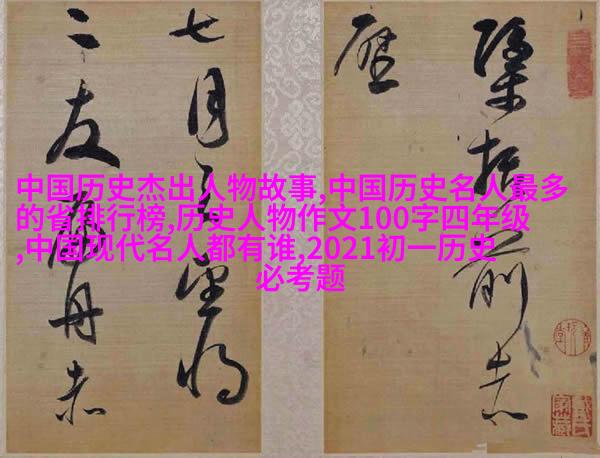 中国历史杰出人物故事,中国历史名人最多
的省排行榜,历史人物作文100字四年级
,中国现代名人都有谁,2021初一历史
必考题
括前赤
壁
七月望
二友舟赤